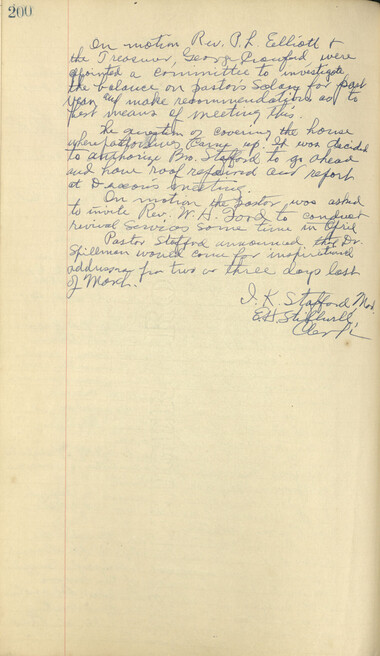 200
On motion Rev. P. L. Elliott &
the Treasurer, George Crawford, were
apointed a committee to investigate
the balance on pastor's salary for past
year and make recommendations as to
best means of meeting this.
The question of covering the house
where pastor lives came up. It was decided
to authorize Bro. Stafford to go ahead
and have roof repaired and report
at Deacons meeting.
On motion the pastor was asked
to invite Rev. W. A. Ford to conduct
revival services some time in April
Pastor Stafford announced that Dr.
Spillman would come for inspirational
addresses for two or three days last
of March.
I. K. Stafford, Mod.
E. H. Stillwell
Clerk